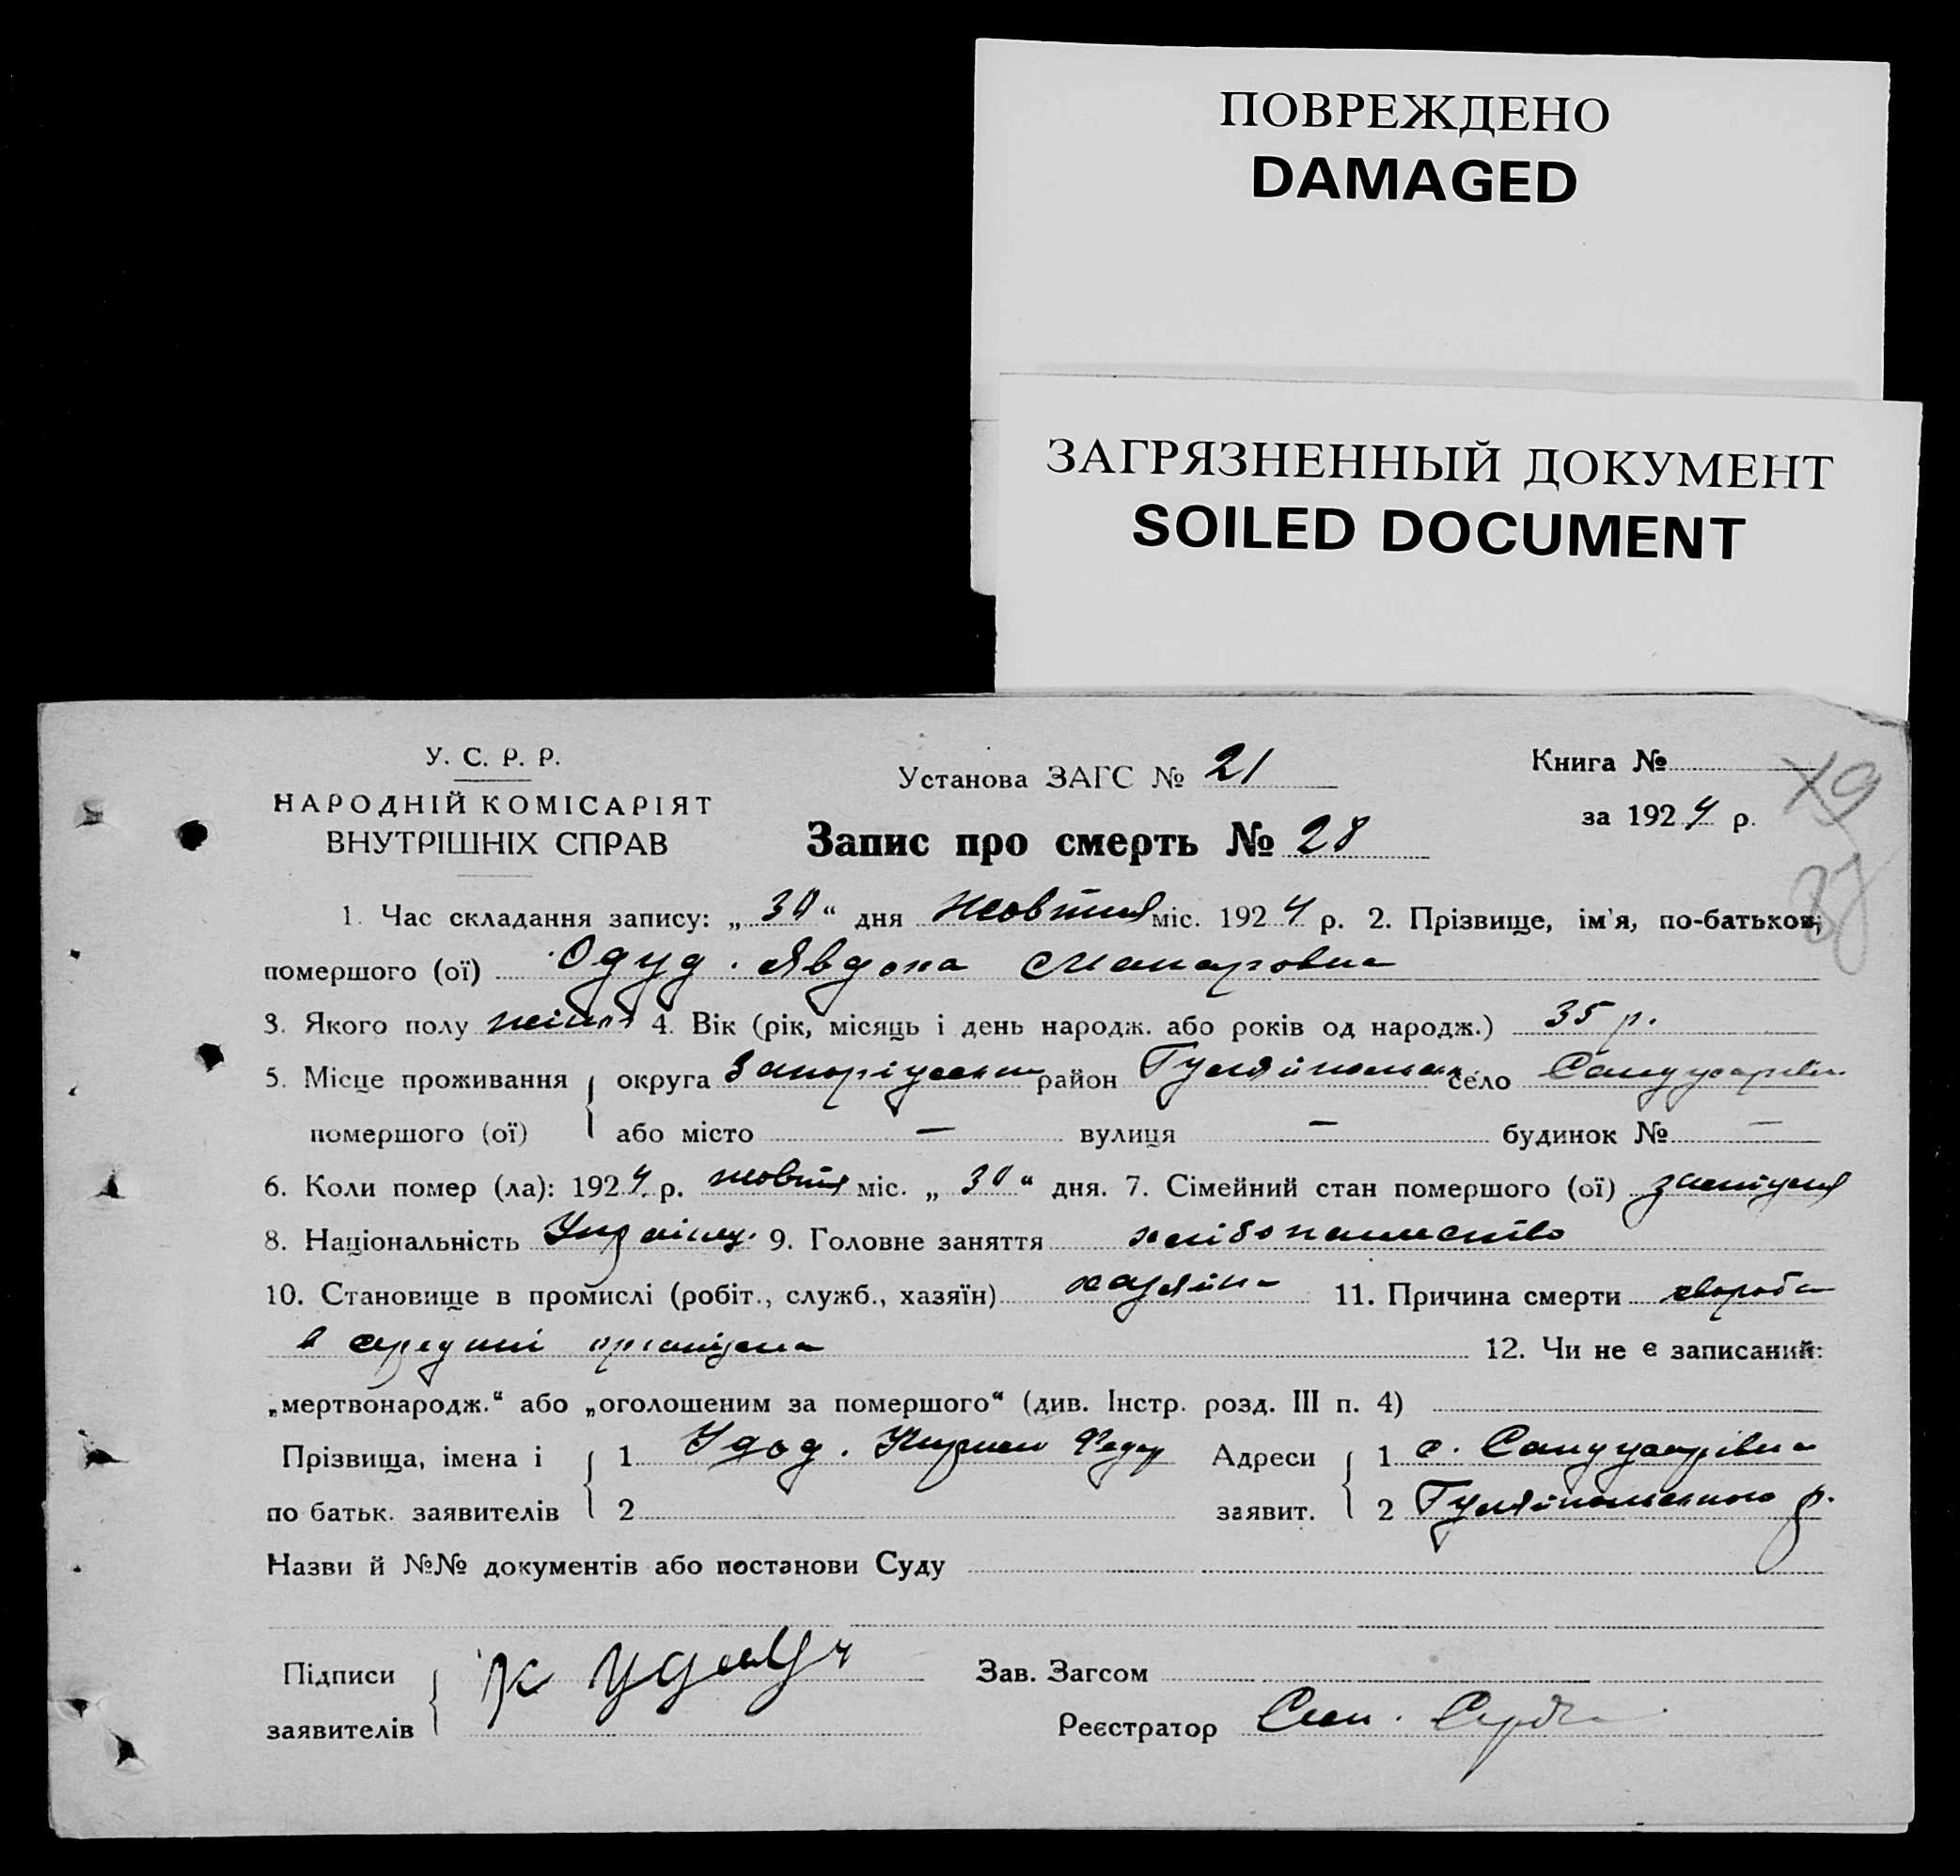 ПОВРЕЖДЕНО
DAMAGED
ЗАГРЯЗНЕННЫЙ ДОКУМЕНТ
SOILED DOCUMENT
У. С. Р. Р.
НАРОДНІЙ КОМІСАРІЯТ
ВНУТРІШНІХ СПРАВ
Установа ЗАГС № 21
Запис про смерть № 28
Книга №
за 1924 р.
1. Час складання запису: „30“ дня Жовтня міс. 1924 р. 2. Прізвище, ім'я, по-батьков;
помершого (ої) Одуд Явдоха Макаровна
3. Якого полу жіноч 4. Вік (рік, місяць і день народж. або років од народж.) 35 р.
5. Місце проживання округа Запоріжська район Гуляйпольськ село
помершого (ої) або місто — вулиця — будинок № —
6. Коли помер (ла): 1924 р. жовтня міс. „30“ дня. 7. Сімейний стан помершого (ої) замужня
8. Національність Україн. 9. Головне заняття хлібопашество
10. Становище в промислі (робіт., служб., хазяїн) хазяйка 11. Причина смерти хвороба
в середині організма 12. Чи не є записаний:
„мертвонародж.“ або „оголошеним за помершого“ (див. Інстр. розд. III п. 4)
Прізвища, імена і 1 Удод Адреси 1 с.
по батьк. заявителів 2 заявит. 2 Гуляйпольського р.
Назви й №№ документів або постанови Суду
Підписи К
заявителів
Зав. Загсом
Реєстратор